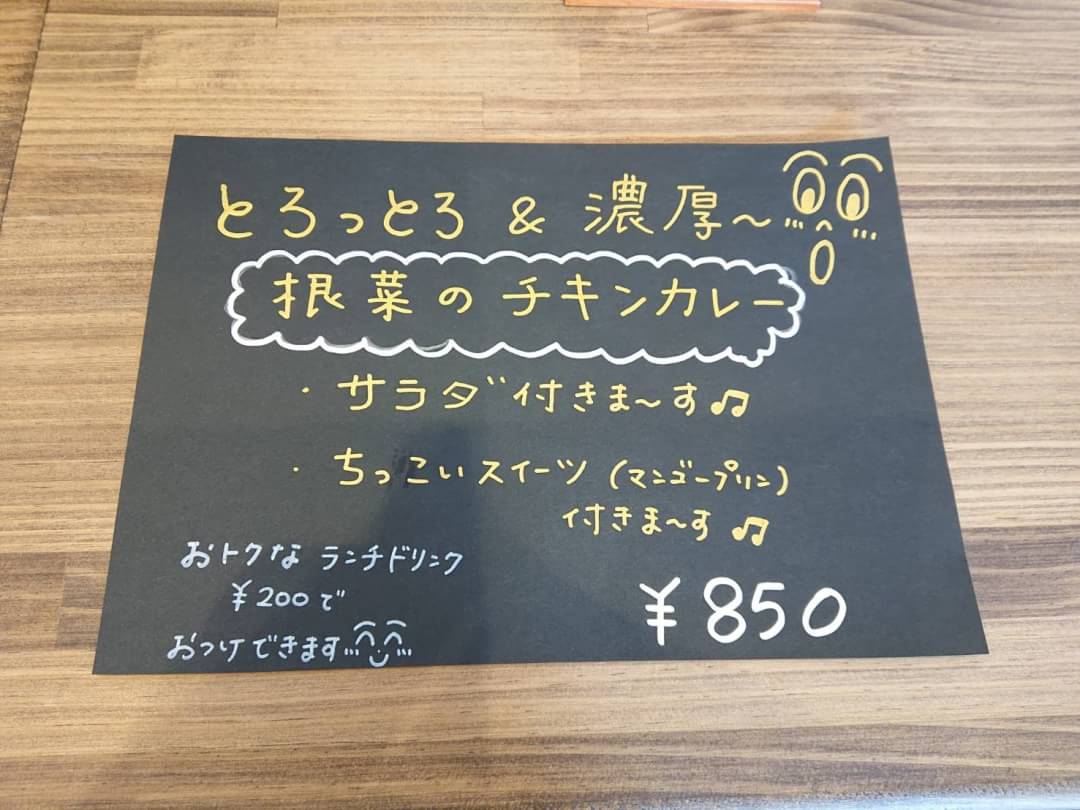 とろっとろ & 濃厚～
根菜のチキンカレー
・サラダ付きま～す♫
・ちっこいスイーツ(マンゴープリン)
付きま～す♫
おトクなランチドリンク
¥200で
おつけできます
¥850